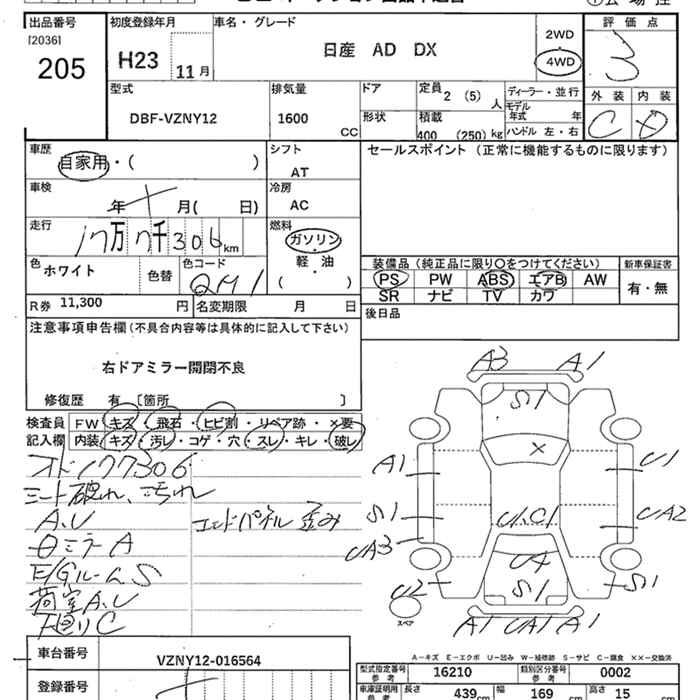 出品番号
[2036]
205
初度登録年月
H23 11月
車名・グレード
日産 AD DX
2WD
4WD
評価点
3
外装 内装
C D
型式
DBF-VZNY12
排気量
1600 CC
ドア
形状
定員 2 (5) 人
積載 400 (250) kg
ディーラー・並行
モデル年式 年
ハンドル 左・右
車歴
自家用・( )
シフト
AT
車検
年 月( 日)
冷房
AC
走行
17万7千306km
燃料
ガソリン
軽・油
( )
色
ホワイト
色替
色コード
QM1
R券 11,300 円
名変期限 月 日
セールスポイント (正常に機能するものに限ります)
装備品 (純正品に限り○をつけてください)
PS PW ABS エアB AW
SR ナビ TV カワ
新車保証書
有・無
後日品
注意事項申告欄 (不具合内容等は具体的に記入して下さい)
右ドアミラー開閉不良
修復歴 有 [箇所 ]
検査員記入欄
FW キズ・飛石・ヒビ割・リペア跡・×要
内装 キズ・汚レ・コゲ・穴・スレ・キレ・破レ
オド177306
シート破れ、汚れ
A.U
エンドパネル歪み
ミラーA
E/GルームS
荷室A.U
下廻りC
A3 A1
S1
×
A1
U1
S1
U.C1
UA2
UA3
UA
U2
S1
S1
A1 UA1 A1
スペア
A-キズ E-エクボ U-凹み W-補修跡 S-サビ C-腐食 ××-交換済
車台番号
VZNY12-016564
登録番号
型式指定番号 参考
16210
類別区分番号 参考
0002
車庫証明用 参考
長さ 439cm
幅 169 cm
高さ 15 cm